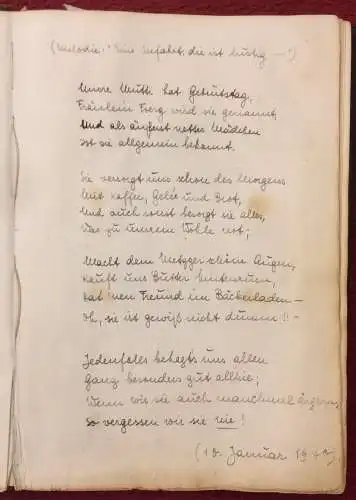 (Melodie: "Eine Seefahrt, die ist lustig —")
Unsre Mutti hat Geburtstag,
Fräulein Berg wird sie genannt,
Und als äußerst nettes Mädchen
Ist sie allgemein bekannt.
Sie versorgt uns schon des Morgens
Mit Kaffee, Gelee und Brot,
Und auch sonst besorgt sie alles,
Was zu unsrem Wohle not;
Macht dem Metzger schöne Augen,
Kauft uns Butter hintenrum,
Hat 'nen Freund im Bäckerladen —
Oh, sie ist gewiß nicht dumm!! —
Jedenfalls behagt's uns allen
Ganz besonders gut allhie;
Wenn wir sie auch manchmal ärgern,
So vergessen wir sie nie!
(10. Januar